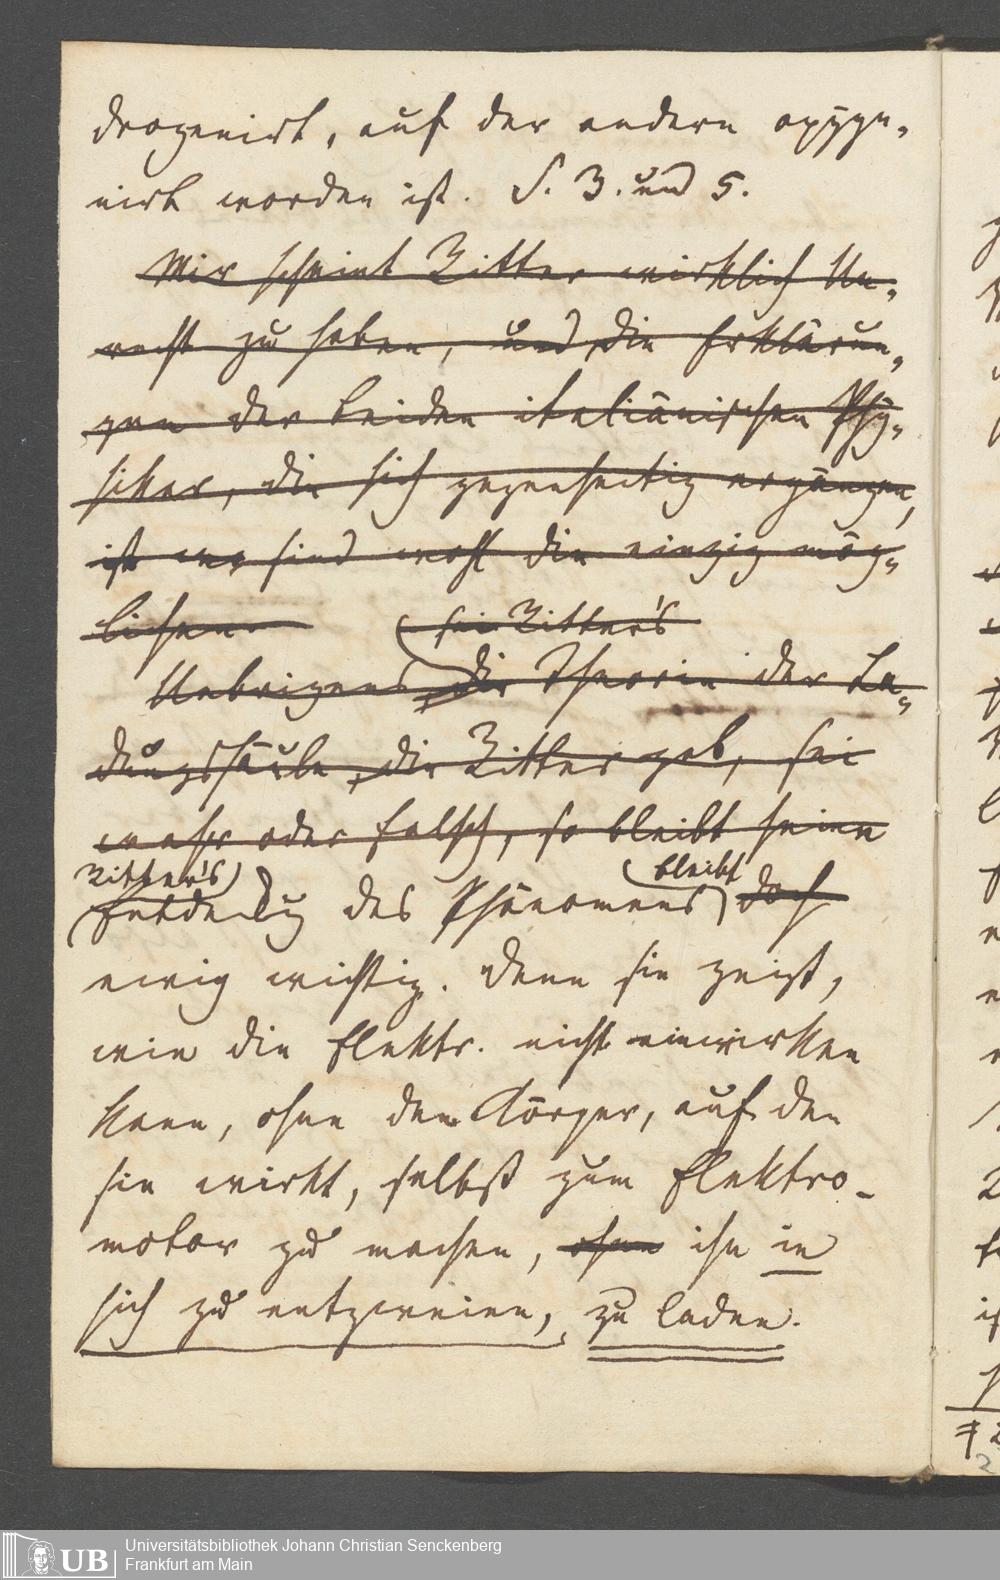 drogenirt, auf der andern oxyge-
nirt worden ist. S. 3. und 5.
Mir scheint Ritter wirklich Un-
recht zu haben, und die Erklärun-
gen der beiden italiänischen Phy-
siker, die sich gegenseitig ergänzen,
ist sind wohl die einzig mög-
lichen
sei Ritter's
Uebrigens die Theorie der La-
dungssäule, die Ritter gab, sei
wahr oder falsch, so bleibt seine
Ritter's bleibt
Entdeckung des Phänomens doch
ewig wichtig. Denn sie zeigt,
wie die Elektr. nicht einwirken
kann, ohne den Körper, auf den
sie wirkt, selbst zum Elektro-
motor zu machen, ohne ihn in
sich zu entzweien, zu laden.
Universitätsbibliothek Johann Christian Senckenberg
Frankfurt am Main
UB